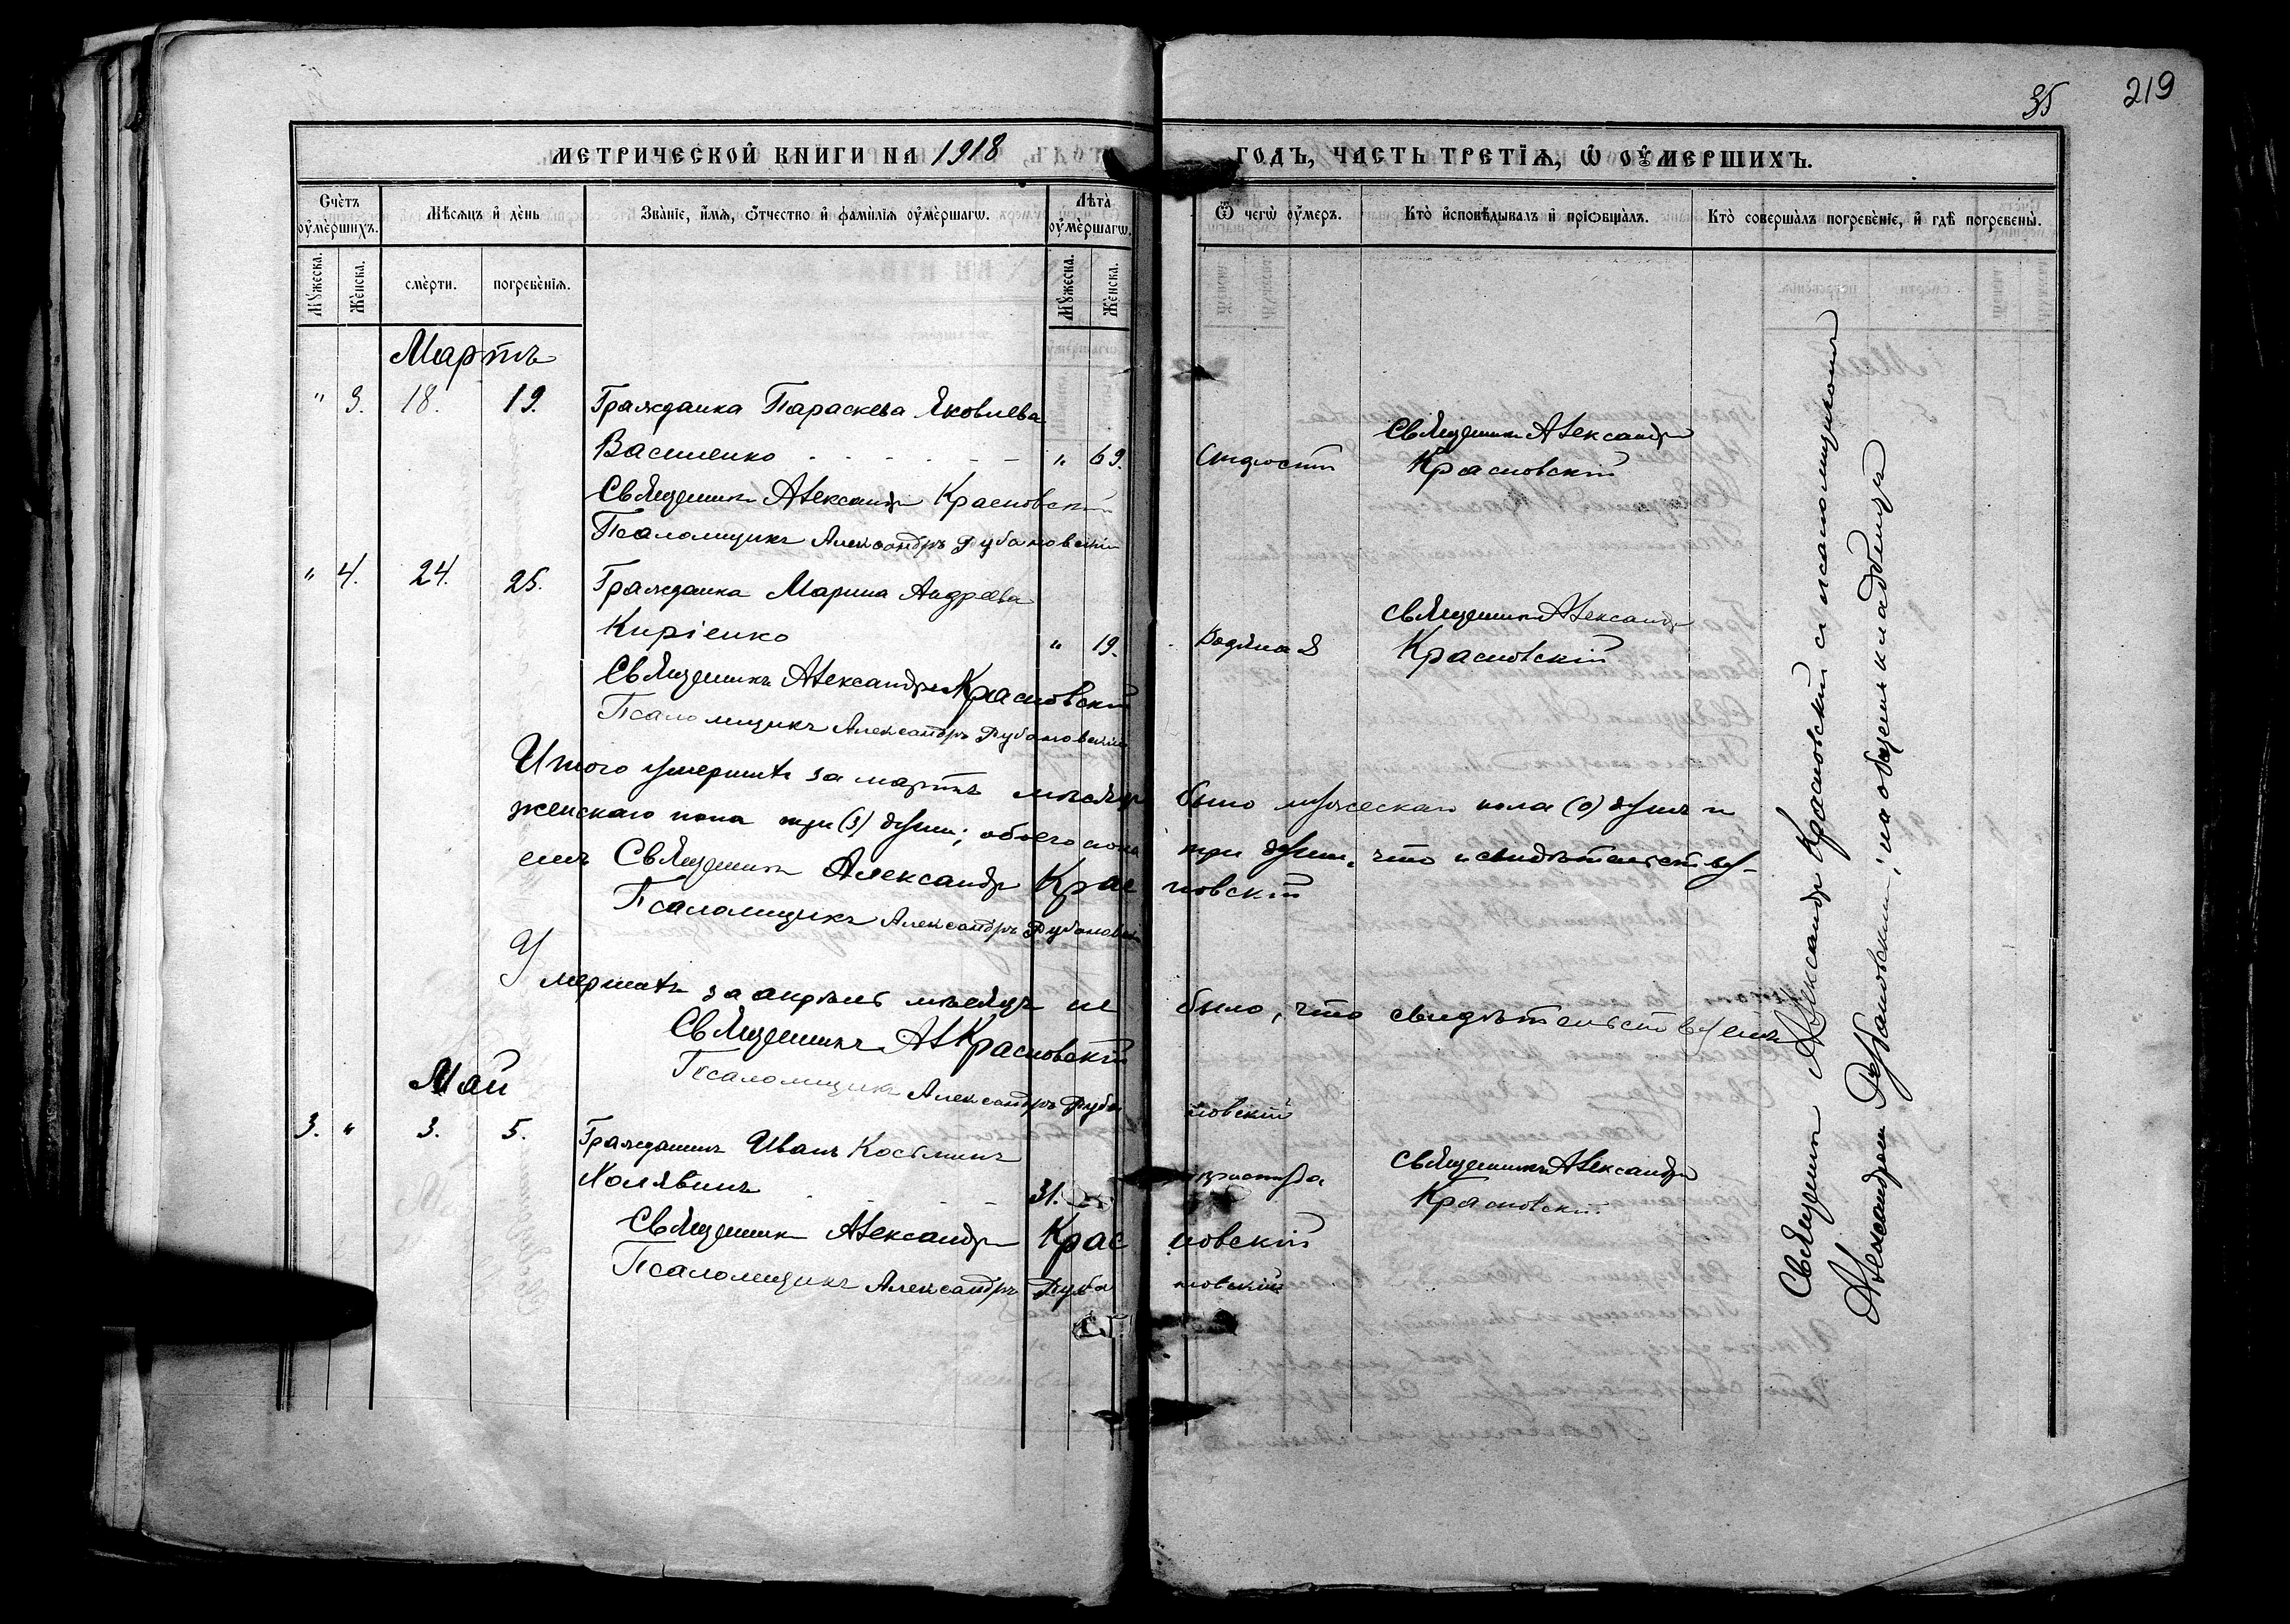 35 219
МЕТРИЧЕСКОЙ КНИГИ НА 1918 ГОДЪ, ЧАСТЬ ТРЕТІѦ, Ѡ ОУМЕРШИХЪ.
Счетъ оумершихъ.
Мѣсяцъ и день
Званіе, имѧ, ѿчество и фамилія оумершагѡ.
Лѣта оумершагѡ.
Ѿ чегѡ оумеръ.
Кто исповѣдывалъ и пріобщалъ.
Кто совершалъ погребеніе, и гдѣ погребены.
Мужеска.
Женска.
смерти.
погребенія.
Мужеска.
Женска.
Мартъ
" 3. 18. 19. Гражданка Параскева Яковлева
Василенко " 69. Старости Священникъ Александръ
Красновскій
Священникъ Александръ Красновскій
Псаломщикъ Александръ Рубановскій
" 4. 24. 25. Гражданка Марина Андреева
Киріенко " 19. Водяная Священникъ Александръ
Красновскій
Священникъ Александръ Красновскій
Псаломщикъ Александръ Рубановскій
Итого умершихъ за мартъ мѣсяцъ было мужескаго пола (0) душъ и
женскаго пола три (3) души; обоего пола три души, что и свидѣтельству-
емъ Священникъ Александръ Красновскій
Псаломщикъ Александръ Рубановскій
Умершихъ за апрѣль мѣсяцъ не было, что свидѣтельствуемъ
Священникъ Ал Красновскій
Псаломщикъ Александръ Рубановскій
Май
3. " 3. 5. Гражданинъ Иванъ Косьминъ
Холявинъ 31. Священникъ Александръ
Красновскій
Священникъ Александръ Красновскій
Псаломщикъ Александръ Рубановскій
Священникъ Александръ Красновскій съ псаломщикомъ
Александромъ Рубановскимъ; на общемъ кладбищѣ